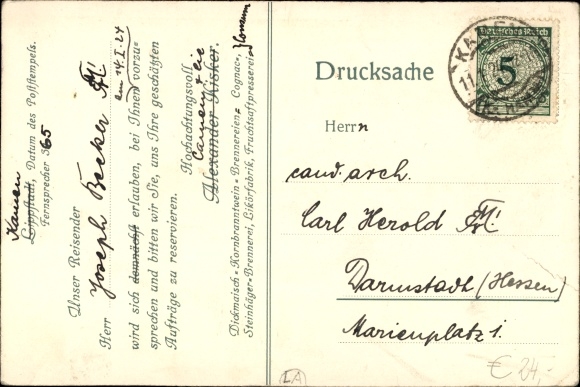 Kamen
Lippstadt, Datum des Poststempels.
Fernsprecher 365
Unser Reisender
Herr Joseph Becker
am 14.I.24
wird sich demnächst erlauben, bei Ihnen vorzu-
sprechen und bitten wir Sie, uns Ihre geschätzten
Aufträge zu reservieren.
Hochachtungsvoll
Alexander Kisker.
Dickmaisch-Kornbranntwein-Brennereien, Cognac-,
Steinhäger-Brennerei, Likörfabrik, Fruchtsaftpresserei
Drucksache
Deutsches Reich
5
Herrn
cand. arch.
Carl Herold
Darmstadt (Hessen)
Marienplatz 1.
LA
€ 24.-